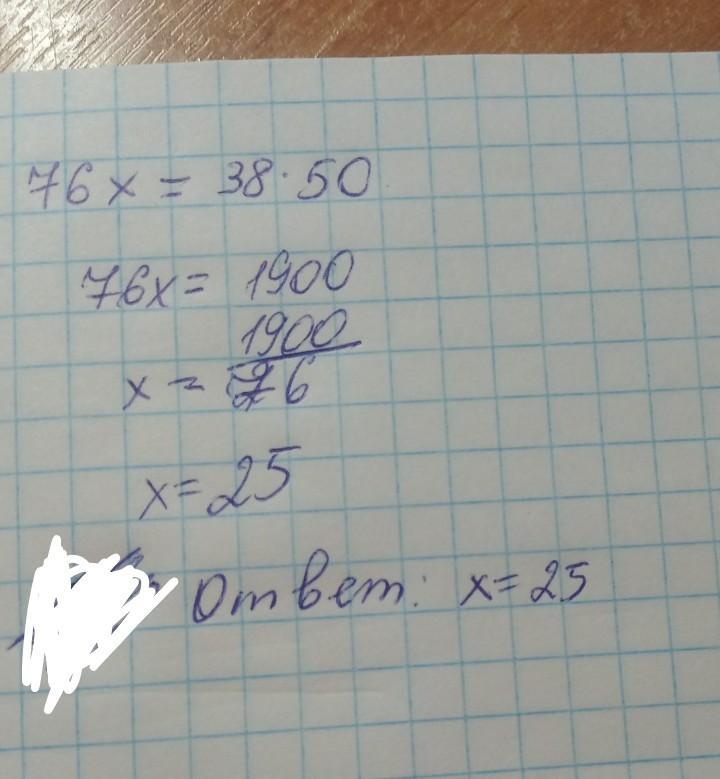 76x = 38·50
76x = 1900
x = 1900/76
x = 25
Ответ: x = 25